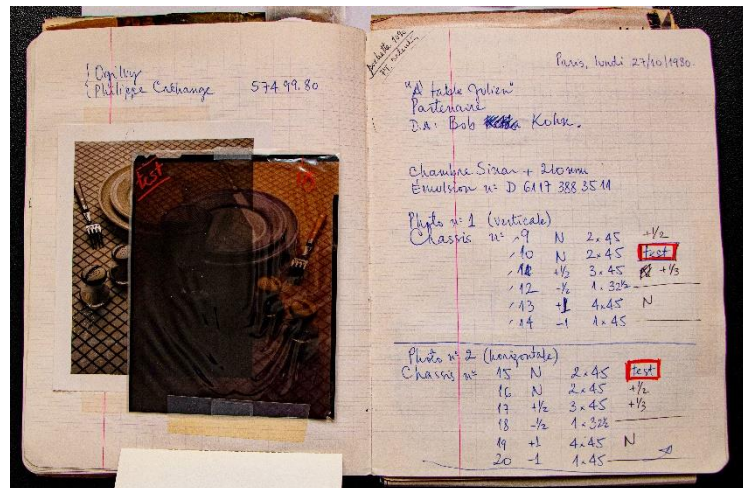 Ogilvy
Philippe Créhange 574 99.80
test
Paris, lundi 27/10/1980.
"A table Julien"
Partenaire
D.A: Bob Kohn.
Chambre Sinar + 210mm
Émulsion n: D 6117 388 3511
Photo n: 1 (verticale)
Chassis n: 9 N 2x45 +1/2
10 N 2x45 test
11 +1/2 3x45 +1/3
12 -1/2 1x32½
13 +1 4x45 N
14 -1 1x45
Photo n: 2 (horizontale)
Chassis n: 15 N 2x45 test
16 N 2x45 +1/2
17 +1/2 3x45 +1/3
18 -1/2 1x32½
19 +1 4x45 N
20 -1 1x45